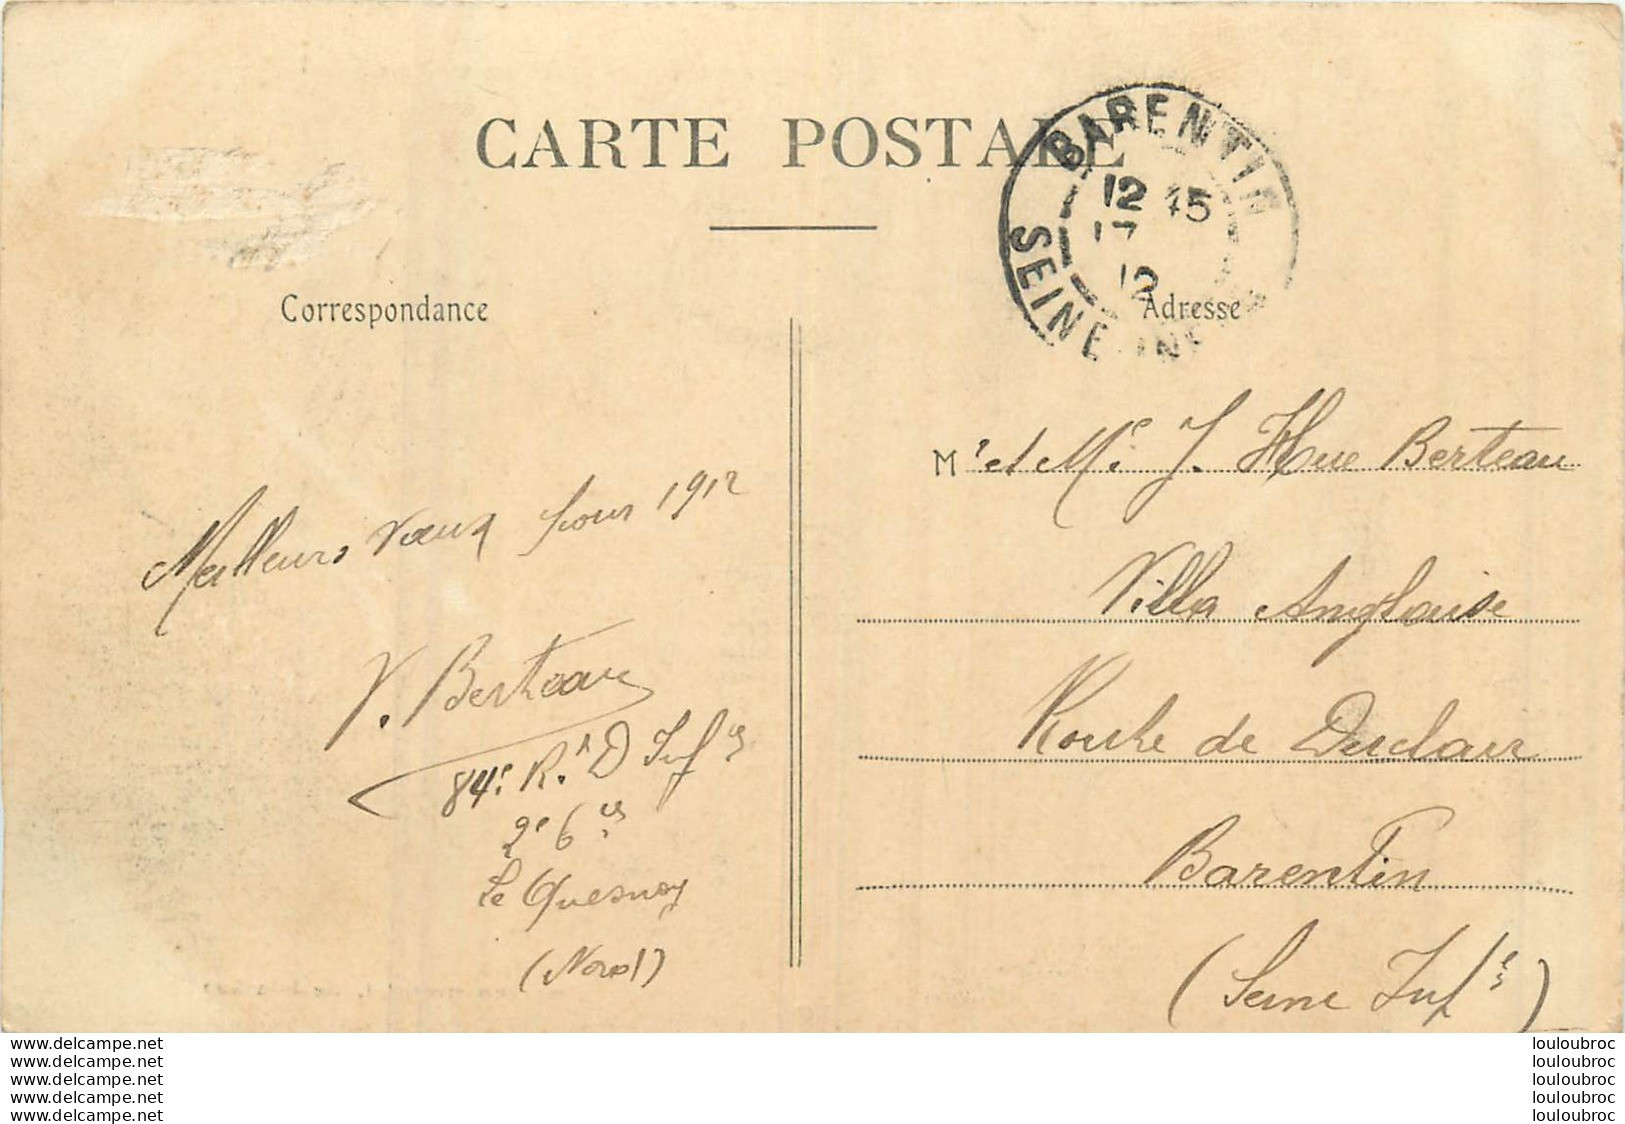 CARTE POSTALE
BARENTIN
12 45
17
12
SEINE INF
Correspondance
Adresse
Meilleurs vœux pour 1912
V. Berteau
84e R.t D Infie
2e Cie
Le Quesnoy
(Nord)
Mr et Me J. Hue Berteau
Villa Anglaise
Route de Duclair
Barentin
(Seine Infre)
www.delcampe.net louloubroc
www.delcampe.net louloubroc
www.delcampe.net louloubroc
www.delcampe.net louloubroc
www.delcampe.net louloubroc